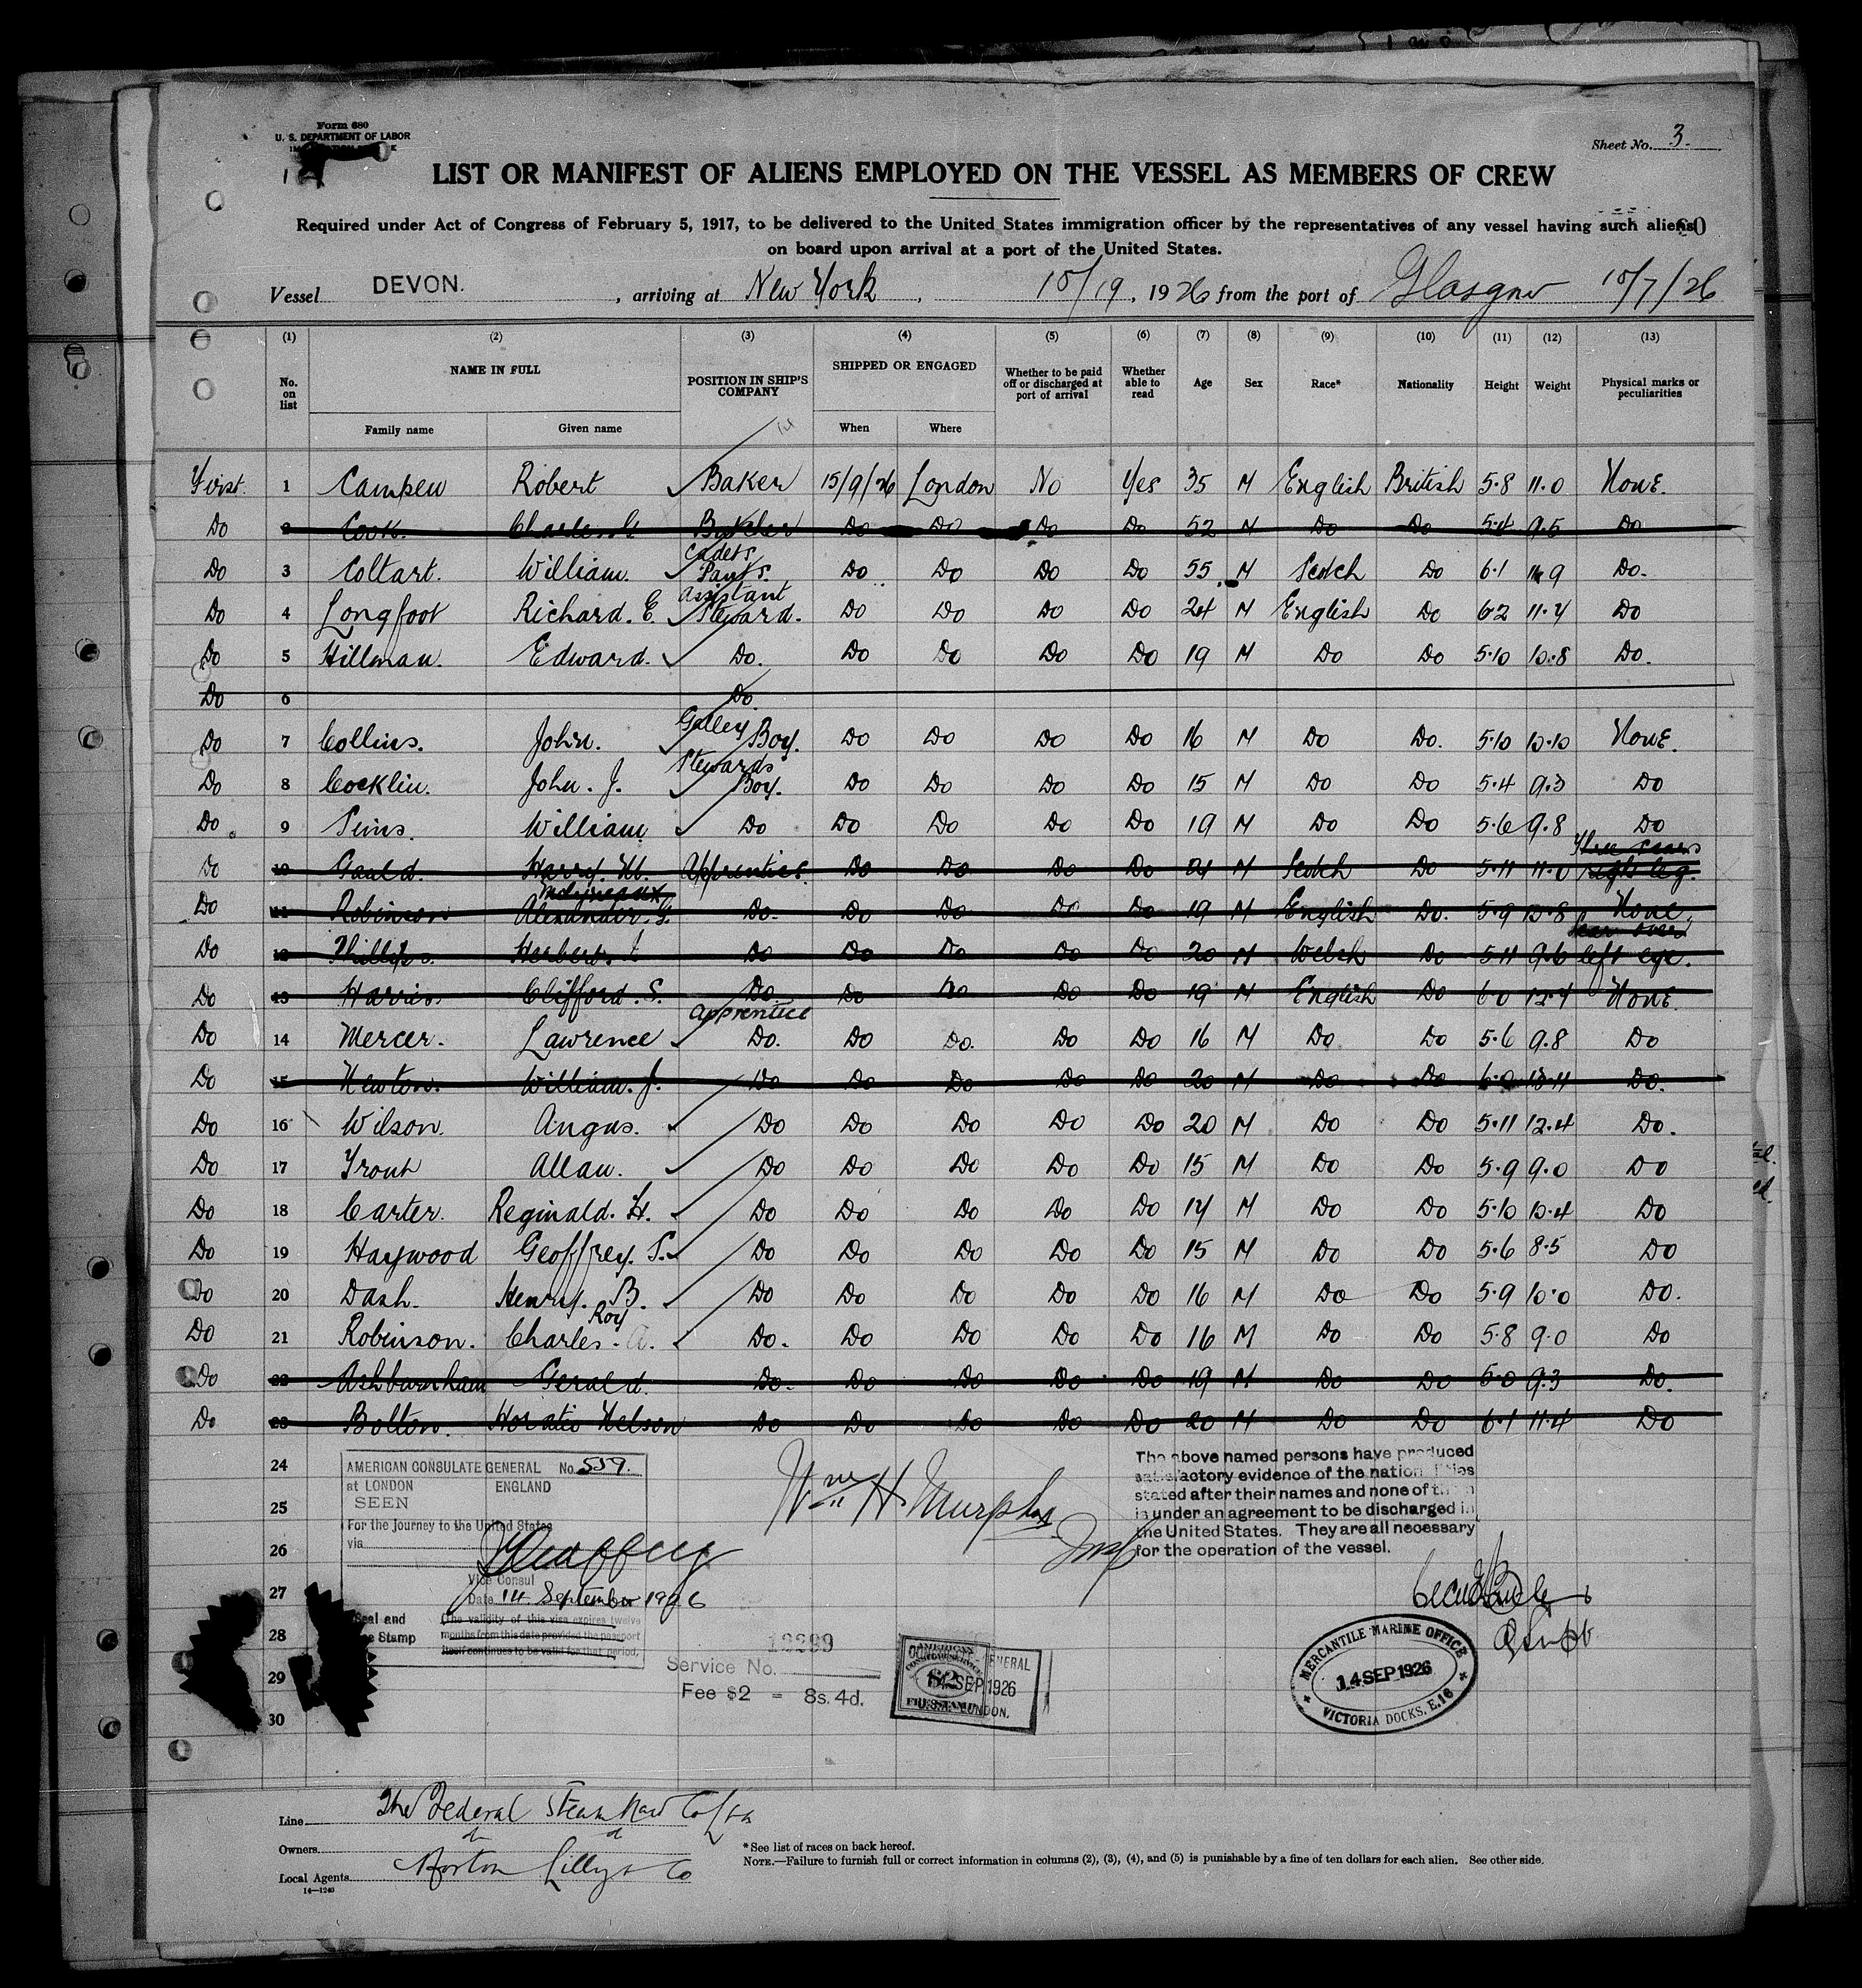 Form 680
U. S. DEPARTMENT OF LABOR
Sheet No. 3.
LIST OR MANIFEST OF ALIENS EMPLOYED ON THE VESSEL AS MEMBERS OF CREW
Required under Act of Congress of February 5, 1917, to be delivered to the United States immigration officer by the representatives of any vessel having such aliens
on board upon arrival at a port of the United States.
Vessel DEVON. , arriving at New York , 10/19 , 1926 from the port of Glasgow 10/7/26
(1) (2) (3) (4) (5) (6) (7) (8) (9) (10) (11) (12) (13)
No. on list NAME IN FULL POSITION IN SHIP'S COMPANY SHIPPED OR ENGAGED Whether to be paid off or discharged at port of arrival Whether able to read Age Sex Race* Nationality Height Weight Physical marks or peculiarities
Family name Given name When Where
First. 1 Robert Baker 15/9/26 London No Yes 35 M English British 5·8 11·0 None.
Do 2 Cook. Charles Do Do Do Do 52 M Do Do 5·4 9·5 Do
Do 3 Coltart. William. Cadets Do Do Do Do 55 M Scotch Do 6·1 Do.
Do 4 Longfoot Richard. E. Assistant Steward. Do Do Do Do 24 M English Do 6·2 11·4 Do
Do 5 Hillman. Edward. Do. Do Do Do Do 19 M Do Do 5·10 10·8 Do.
Do 6 Do
Do 7 Collins. John. Galley Boy. Do Do Do Do 16 M Do Do. 5·10 10·10 None.
Do 8 Cocklin. John. J. Stewards Boy. Do Do Do Do 15 M Do Do 5·4 9·3 Do
Do 9 William Do Do Do Do Do 19 M Do Do 5·6 9·8 Do
Do 10 Gauld. Harry. Apprentice. Do Do Do Do 21 M Scotch Do 5·11 11·0 right leg.
Do 11 Robinson Alexander. Do. Do Do Do Do 19 M English Do. 5·9 10·8 None.
Do 12 Phillips. Herbert Do Do Do Do Do 20 M Welsh Do 5·11 9·6 Scar over left eye.
Do 13 Harris. Clifford. S. Do Do Do Do Do 19 M English Do 6·0 12·4 None
Do 14 Mercer. Lawrence Apprentice Do. Do Do. Do Do 16 M Do Do 5·6 9·8 Do
Do 15 Newton. William. J. Do Do Do Do Do 20 M Do Do 6·0 Do.
Do 16 Wilson. Angus. Do Do Do Do Do 20 M Do Do 5·11 12·4 Do.
Do 17 Trout Allan. Do Do Do Do Do 15 M Do Do 5·9 9·0 Do
Do 18 Carter. Reginald. H. Do Do Do Do Do 17 M Do Do 5·10 10·4 Do
Do 19 Haywood Geoffrey. S. Do Do Do Do Do 15 M Do Do 5·6 8·5 Do
Do 20 Dash. Henry. B. Do Do Do Do Do 16 M Do Do 5·9 10·0 Do.
Do 21 Robinson. Charles. Roy Do. Do Do Do Do 16 M Do Do 5·8 9·0 Do
Do 22 Ashburnham Gerald. Do. Do Do Do Do 19 M Do Do 9·3 Do.
Do 23 Bolton. Horatio Nelson Do Do Do Do Do 20 M Do Do 6·1 11·4 Do
24
25
26
27
28
29
30
AMERICAN CONSULATE GENERAL No. 559.
at LONDON ENGLAND
SEEN
For the Journey to the United States
via
Vice Consul
Date 14 September 1926
Seal and
Stamp
(The validity of this visa expires twelve
months from this date provided the passport
itself continues to be valid for that period.
Wm H Murphy
Insp
The above named persons have produced
satisfactory evidence of the nationalities
stated after their names and none of them
is under an agreement to be discharged in
the United States. They are all necessary
for the operation of the vessel.
Service No.
Fee $2 = 8s. 4d.
AMERICAN
CONSULAR SERVICE
$2
FEE STAMP
14 SEP 1926
MERCANTILE MARINE OFFICE
14 SEP 1926
VICTORIA DOCKS, E.16
Line The Federal Steam Nav Co Ltd
Owners
Local Agents Norton Lilly & Co
14—1240
*See list of races on back hereof.
NOTE.—Failure to furnish full or correct information in columns (2), (3), (4), and (5) is punishable by a fine of ten dollars for each alien. See other side.